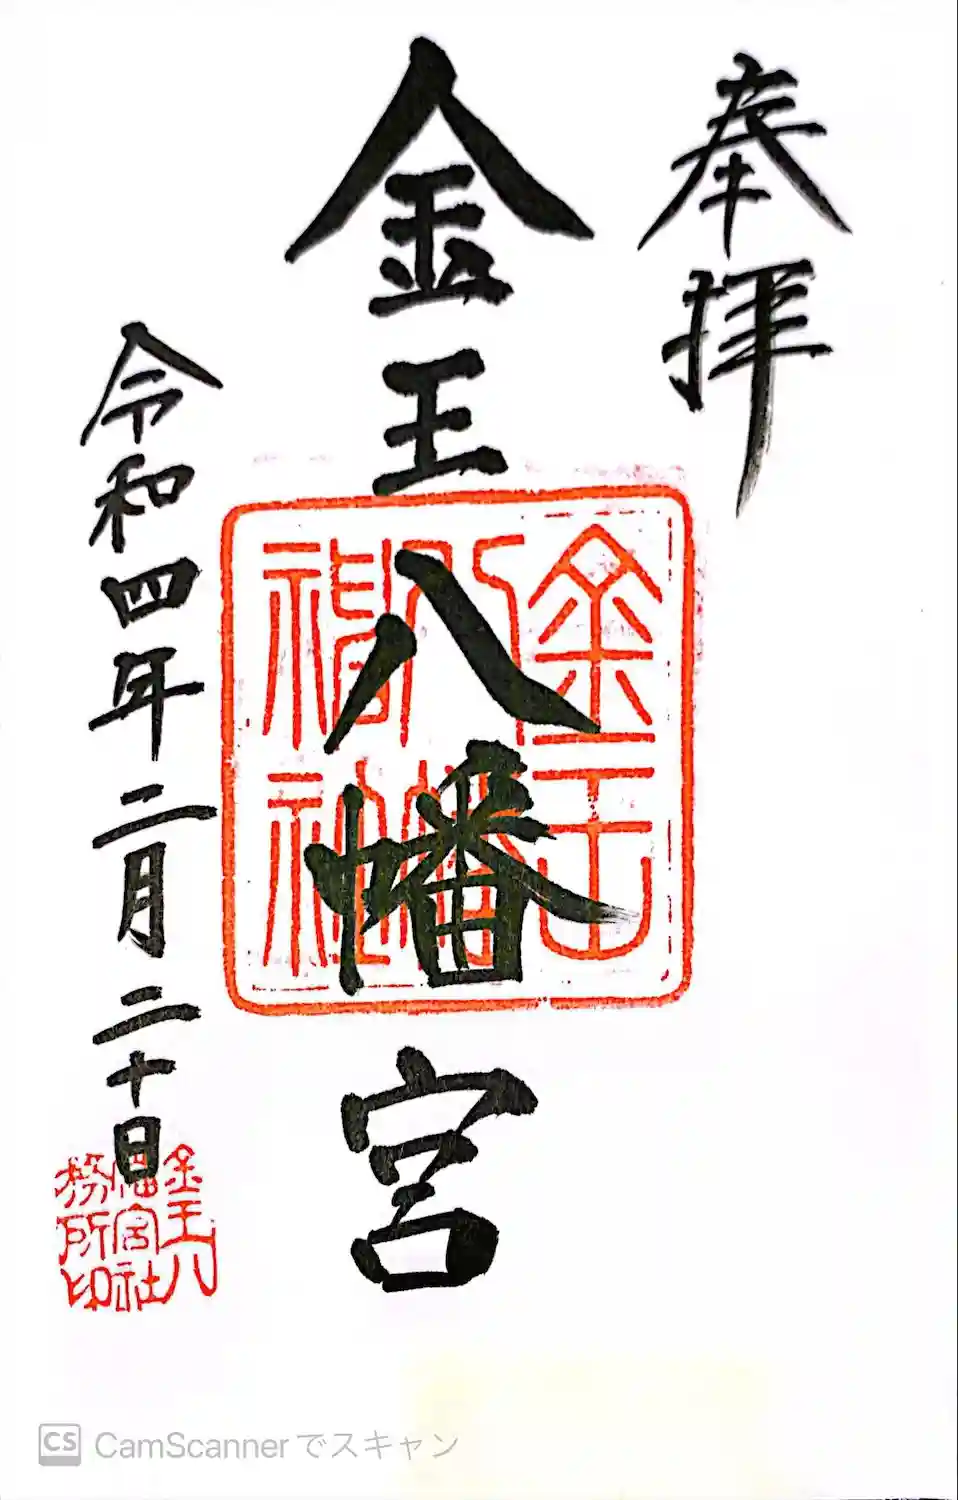 奉拝
金王八幡宮
令和四年二月二十日
金王八
幡宮社
務所印
CS CamScannerでスキャン